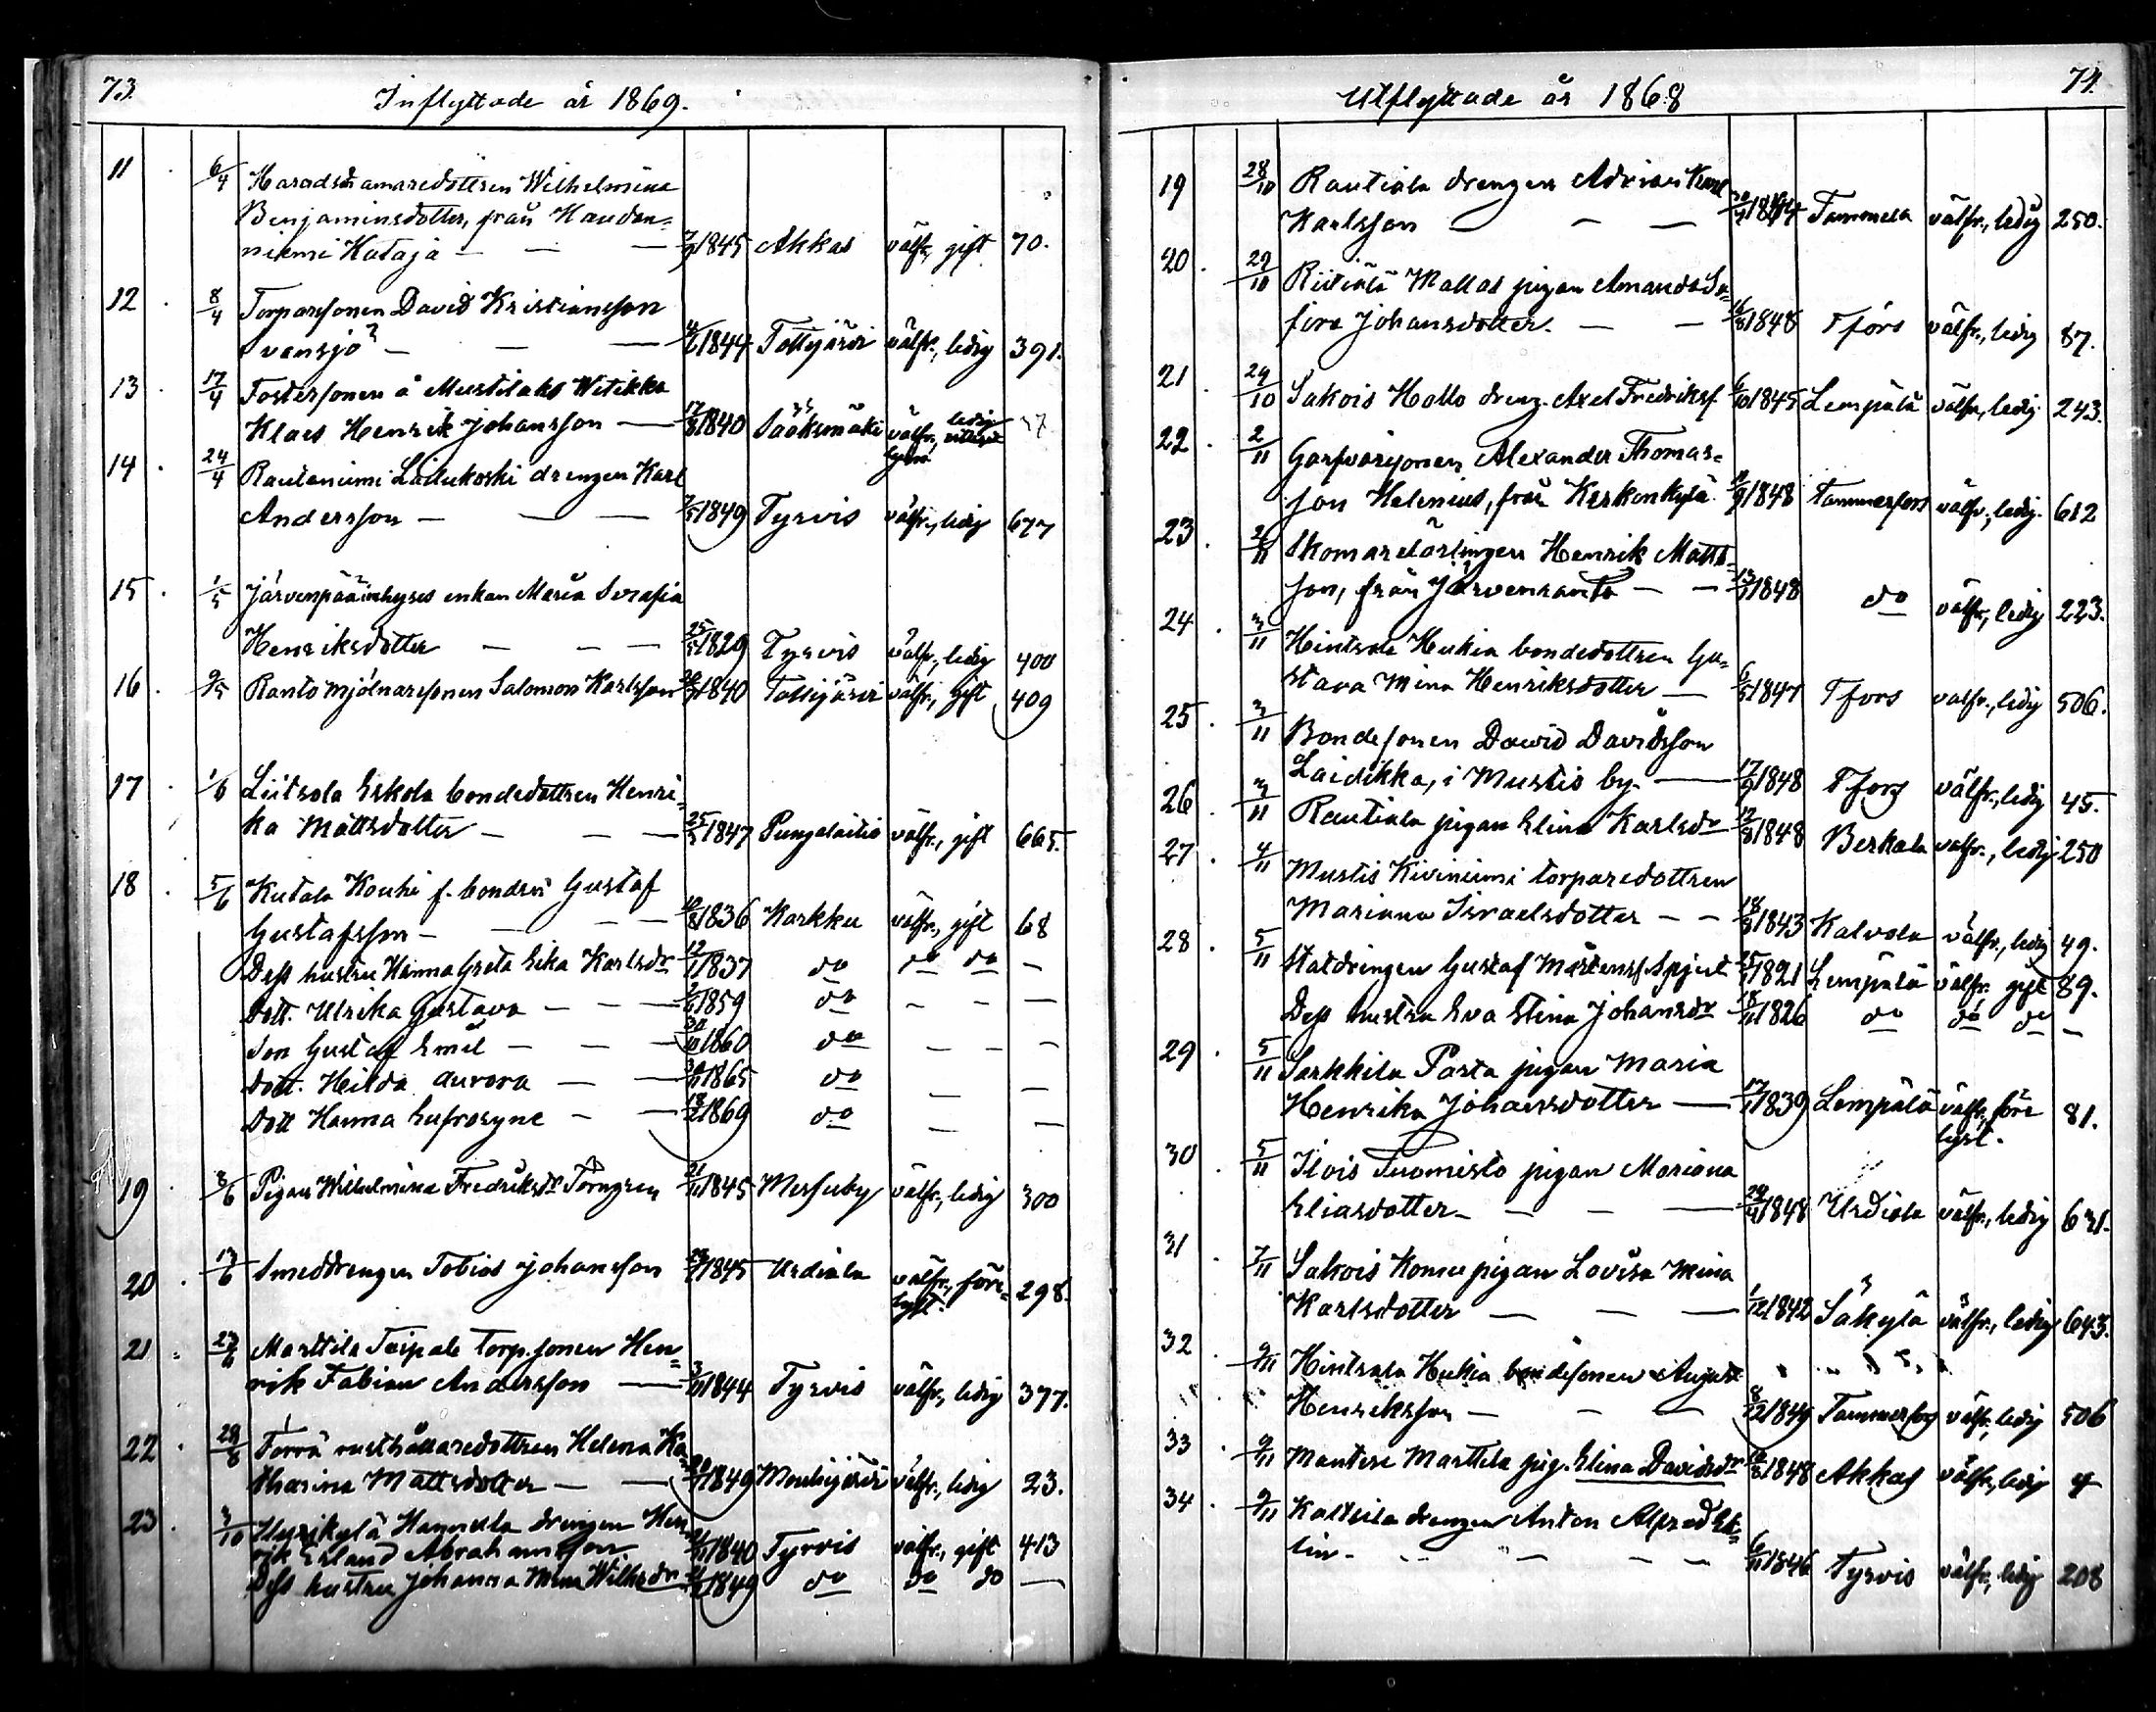 73.
Inflyttade år 1869.
11 . 6/4 Häradsdomaredottren Wilhelmina
Benjaminsdotter, från Haudan=
niemi Kataja — — — 1845 Akkas välfr., gift 70.
12 . 8/4 Torparsonen David Kristiansson
— — 1844 Tottijärvi välfr., ledig 391.
13 . 17/4 Fostersonen å Mustilaks Witikka
Klaes Henrik Johansson — 17/8 1840 Sääksmäki välfr., ledig
14 . 24/4 Rautaniemi Laukukoski drengen Karl
Andersson — — — 7/5 1849 Tyrvis välfr., ledig 677
15 . 1/5 Järvenpää inhyses enkan Maria Serafia
Henriksdotter — — — 25/5 1829 Tyrvis välfr., ledig 400
16 . 9/5 Ranto mjölnarssonen Salomon Karlsson 1840 Tottijärvi välfr., gift 409
17 . 1/6 Liitsola Eskola bondedottren Henri=
ka Mattsdotter — — — 25/3 1847 Pungalaitio välfr., gift 665.
18 . 5/6 Kutala Kouhi f. bonden Gustaf
Gustafsson — — — 1836 Karkku välfr., gift 68
Dess hustru Hanna Greta Lika Karlsdr 12/1 1837 do do do —
Dott. Ulrika Gustava — — — 1859 do — — —
Son Gustaf Emil — — — 30/10 1860 do — — —
Dott. Hilda Aurora — — 1865 do — —
Dott Hanna Eufrosyne — — 18/2 1869 do — —
19 3/6 Pigan Wilhelmina Fredriksdr Törngren 21/11 1845 Messuby välfr., ledig 300
20 . 13/6 Smeddrengen Tobias Johansson 1845 Urdiala välfr., före=
lyst. 298.
21 . Marttila Taipale torp.sonen Hen=
rik Fabian Andersson — 1844 Tyrvis välfr., ledig 377.
22 . 28/8 Törrä rusthållaredottren Helena Ka
tharina Mattsdotter — — 1849 Mouhijärvi välfr., ledig 23.
23 . 3/10 Hyrikylä Hannula drengen Hen
rik Erland Abrahamsson 1840 Tyrvis välfr., gift 413
Dess hustru Johanna Mina Wilhsdr 1849 do do do —
74.
Utflyttade år 1868
19 28/10 Rautiala drengen Adrian Karl
Karlsson — — — 1844 Tammela välfr., ledig 250.
20 . 29/10 Riitiälä Mallas pigan Amanda Se=
fira Johansdotter. — — 1848 Tfors välfr., ledig 87.
21 . 29/10 Sakois Hollo dreng. Axel Fredriksf. 6/10 1845 Lempälä välfr., ledig. 243.
22 . 2/11 Garfvarsonen Alexander Thomas=
son Helenius, från Kerkonkylä. 1848 Tammerfors välfr., ledig. 612
23 . 2/11 Skomakelärlingen Henrik Matts=
son, från Järvensanta — — 13/7 1848 do välfr., ledig 223.
24 . 3/11 Heintsala Heikia bondedottren Gu=
stava Mina Henriksdotter — 6/5 1847 Tfors välfr., ledig 506.
25 . 3/11 Bondesonen Dawid Davidsson
Laidikka, i Mustio by. — 17/9 1848 Tfors välfr., ledig 45.
26 . 3/11 Rautiala pigan Elina Karlsdr 17/8 1848 Berkala välfr., ledig 250
27 . 4/11 Mustis Kiviniemi torparedottren
Mariana Israelsdotter — — 18/9 1843 Kalvola välfr., ledig 49.
28 . 5/11 Statdrengen Gustaf Mårtensf. Spjut 1821 Lempälä välfr. gift 89.
Dess hustru Eva Stina Johansdr 18/11 1826 do do do —
29 . 5/11 Sarkkila Parta pigan Maria
Henrika Johansdotter — 17/1 1839 Lempälä välfr., före
lyst. 81.
30 . 5/11 Ilois Tuomisto pigan Mariana
Eliasdotter — — — 1848 Urdiala välfr., ledig 631.
31 . 7/11 Sakois Komu pigan Lovisa Mina
Karlsdotter — — — 1/12 1842 Säkylä välfr., ledig 643.
32 . 9/11 Hintsala Heikia bondesonen August
Henriksson — — — 8/12 1849 Tammerfors välfr., ledig 506
33 . 9/11 Mantere Marttila pig. Elina Davidsdr 1848 Akkas välfr., ledig 4
34 . 9/11 Kaltsila drengen Anton Alfred Ek=
lin — — — 6/11 1846 Tyrvis välfr., ledig 208